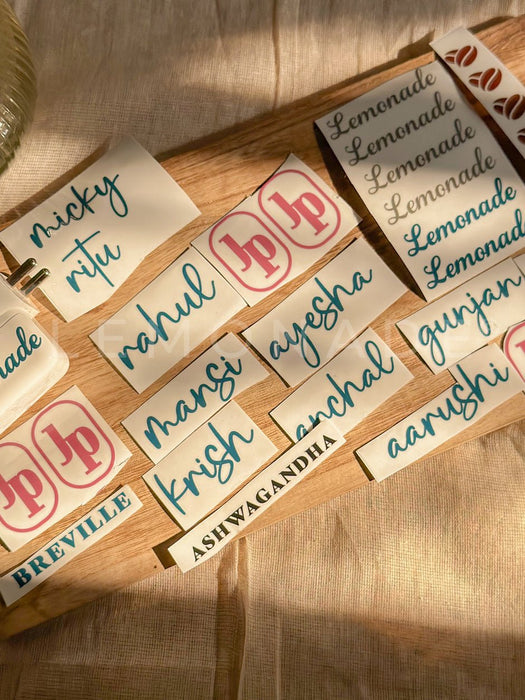 Lemonade
Lemonade
Lemonade
Lemonade
Lemonade
Lemonade
micky
ritu
Jp
Jp
rahul
ayesha
gunjan
LEMONADE
nade
mansi
anchal
aarushi
Jp
Jp
krish
ASHWAGANDHA
BREVILLE